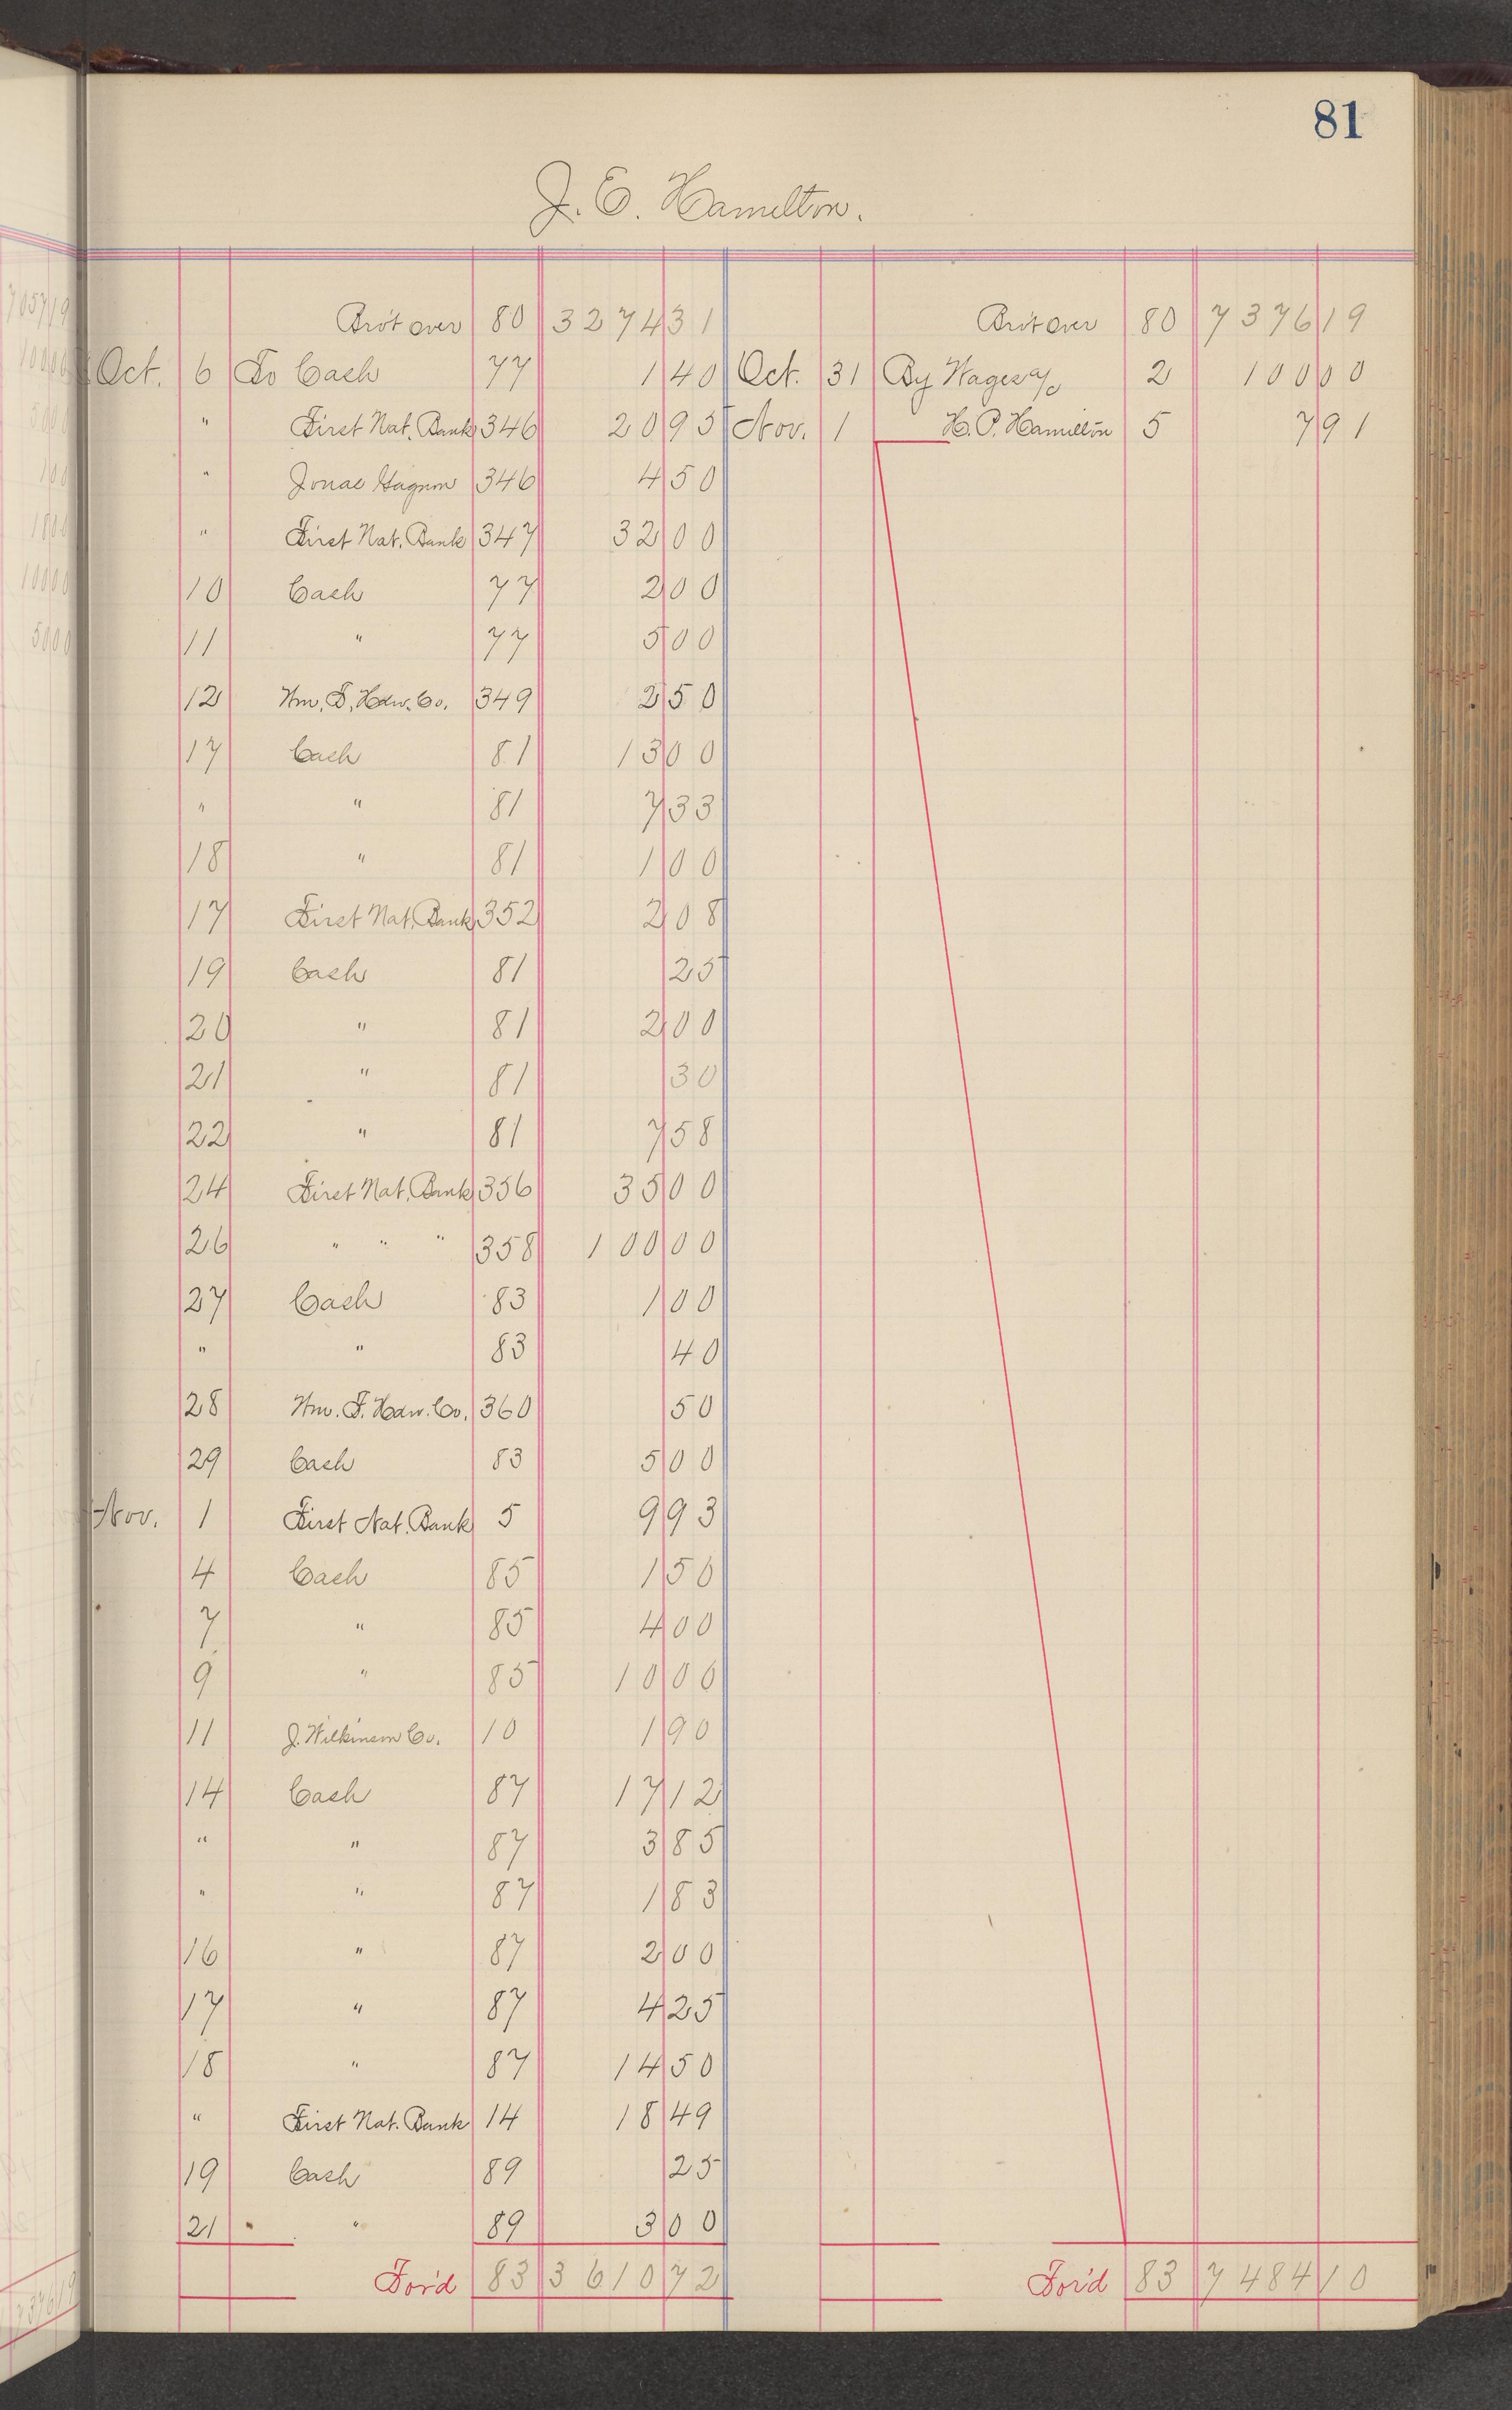 81
J. E. Hamilton.
Bro't over 80 3274 31 Bro't over 80 7376 19
Oct. 6 To Cash 77 1 40 Oct. 31 By Wages a/c 2 100 00
" First Nat. Bank 346 20 95 Nov. 1 H. P. Hamilton 5 7 91
" Jonas 346 4 50
" First Nat. Bank 347 32 00
10 Cash 77 2 00
11 " 77 5 00
12 Wm. F. Hdw. Co. 349 2 50
17 Cash 81 13 00
" " 81 7 33
18 " 81 1 00
17 First Nat. Bank 352 2 08
19 Cash 81 25
20 " 81 2 00
21 " 81 30
22 " 81 7 58
24 First Nat. Bank 356 35 00
26 " " " 358 100 00
27 Cash 83 1 00
" " 83 40
28 Wm. F. Hdw. Co. 360 50
29 Cash 83 5 00
Nov. 1 First Nat. Bank 5 9 93
4 Cash 85 1 50
7 " 85 4 00
9 " 85 10 00
11 J. Wilkinson Co. 10 1 90
14 Cash 87 17 12
" " 87 3 85
" " 87 1 83
16 " 87 2 00
17 " 87 4 25
18 " 87 14 50
" First Nat. Bank 14 18 49
19 Cash 89 25
21 " 89 3 00
For'd 83 3610 72 For'd 83 7484 10